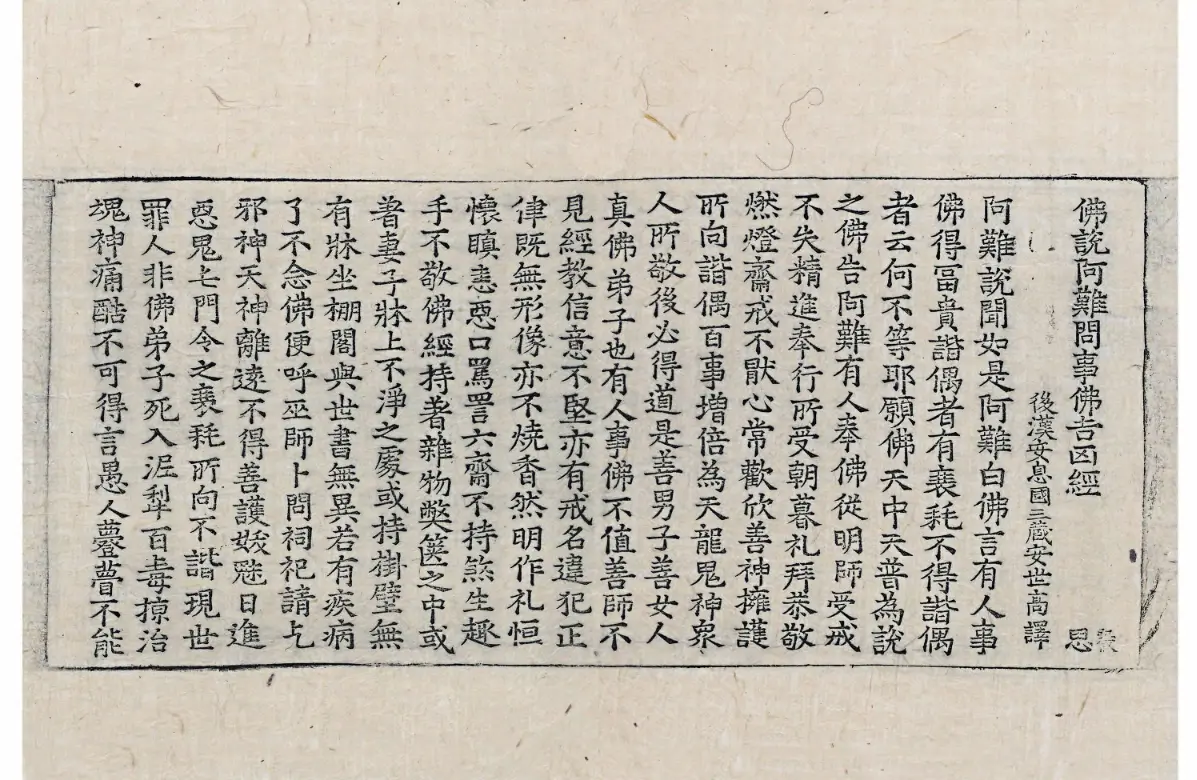 佛說阿難問事佛吉凶經
思
後漢安息國三藏安世高譯
阿難說聞如是阿難白佛言有人事
佛得冨貴諧偶者有衰耗不得諧偶
者云何不等耶願佛天中天普為說
之佛告阿難有人奉佛從明師受戒
不失精進奉行所受朝暮礼拜恭敬
燃燈齋戒不猒心常歡欣善神擁護
所向諧偶百事增倍為天龍鬼神衆
人所敬後必得道是善男子善女人
真佛弟子也有人事佛不值善師不
見經教信意不堅亦有戒名違犯正
律既無形像亦不燒香然明作礼恒
懷瞋恚惡口罵詈六齋不持煞生趣
手不敬佛經持著雜物弊篋之中或
著妻子牀上不淨之處或持掛壁無
有牀坐棚閣與世書無異若有疾病
了不念佛便呼巫師卜問祠祀請乞
邪神天神離遠不得善護妖魅日進
惡鬼屯門令之衰耗所向不諧現世
罪人非佛弟子死入泥犁百毒掠治
魂神痛酷不可得言愚人憂夢不能